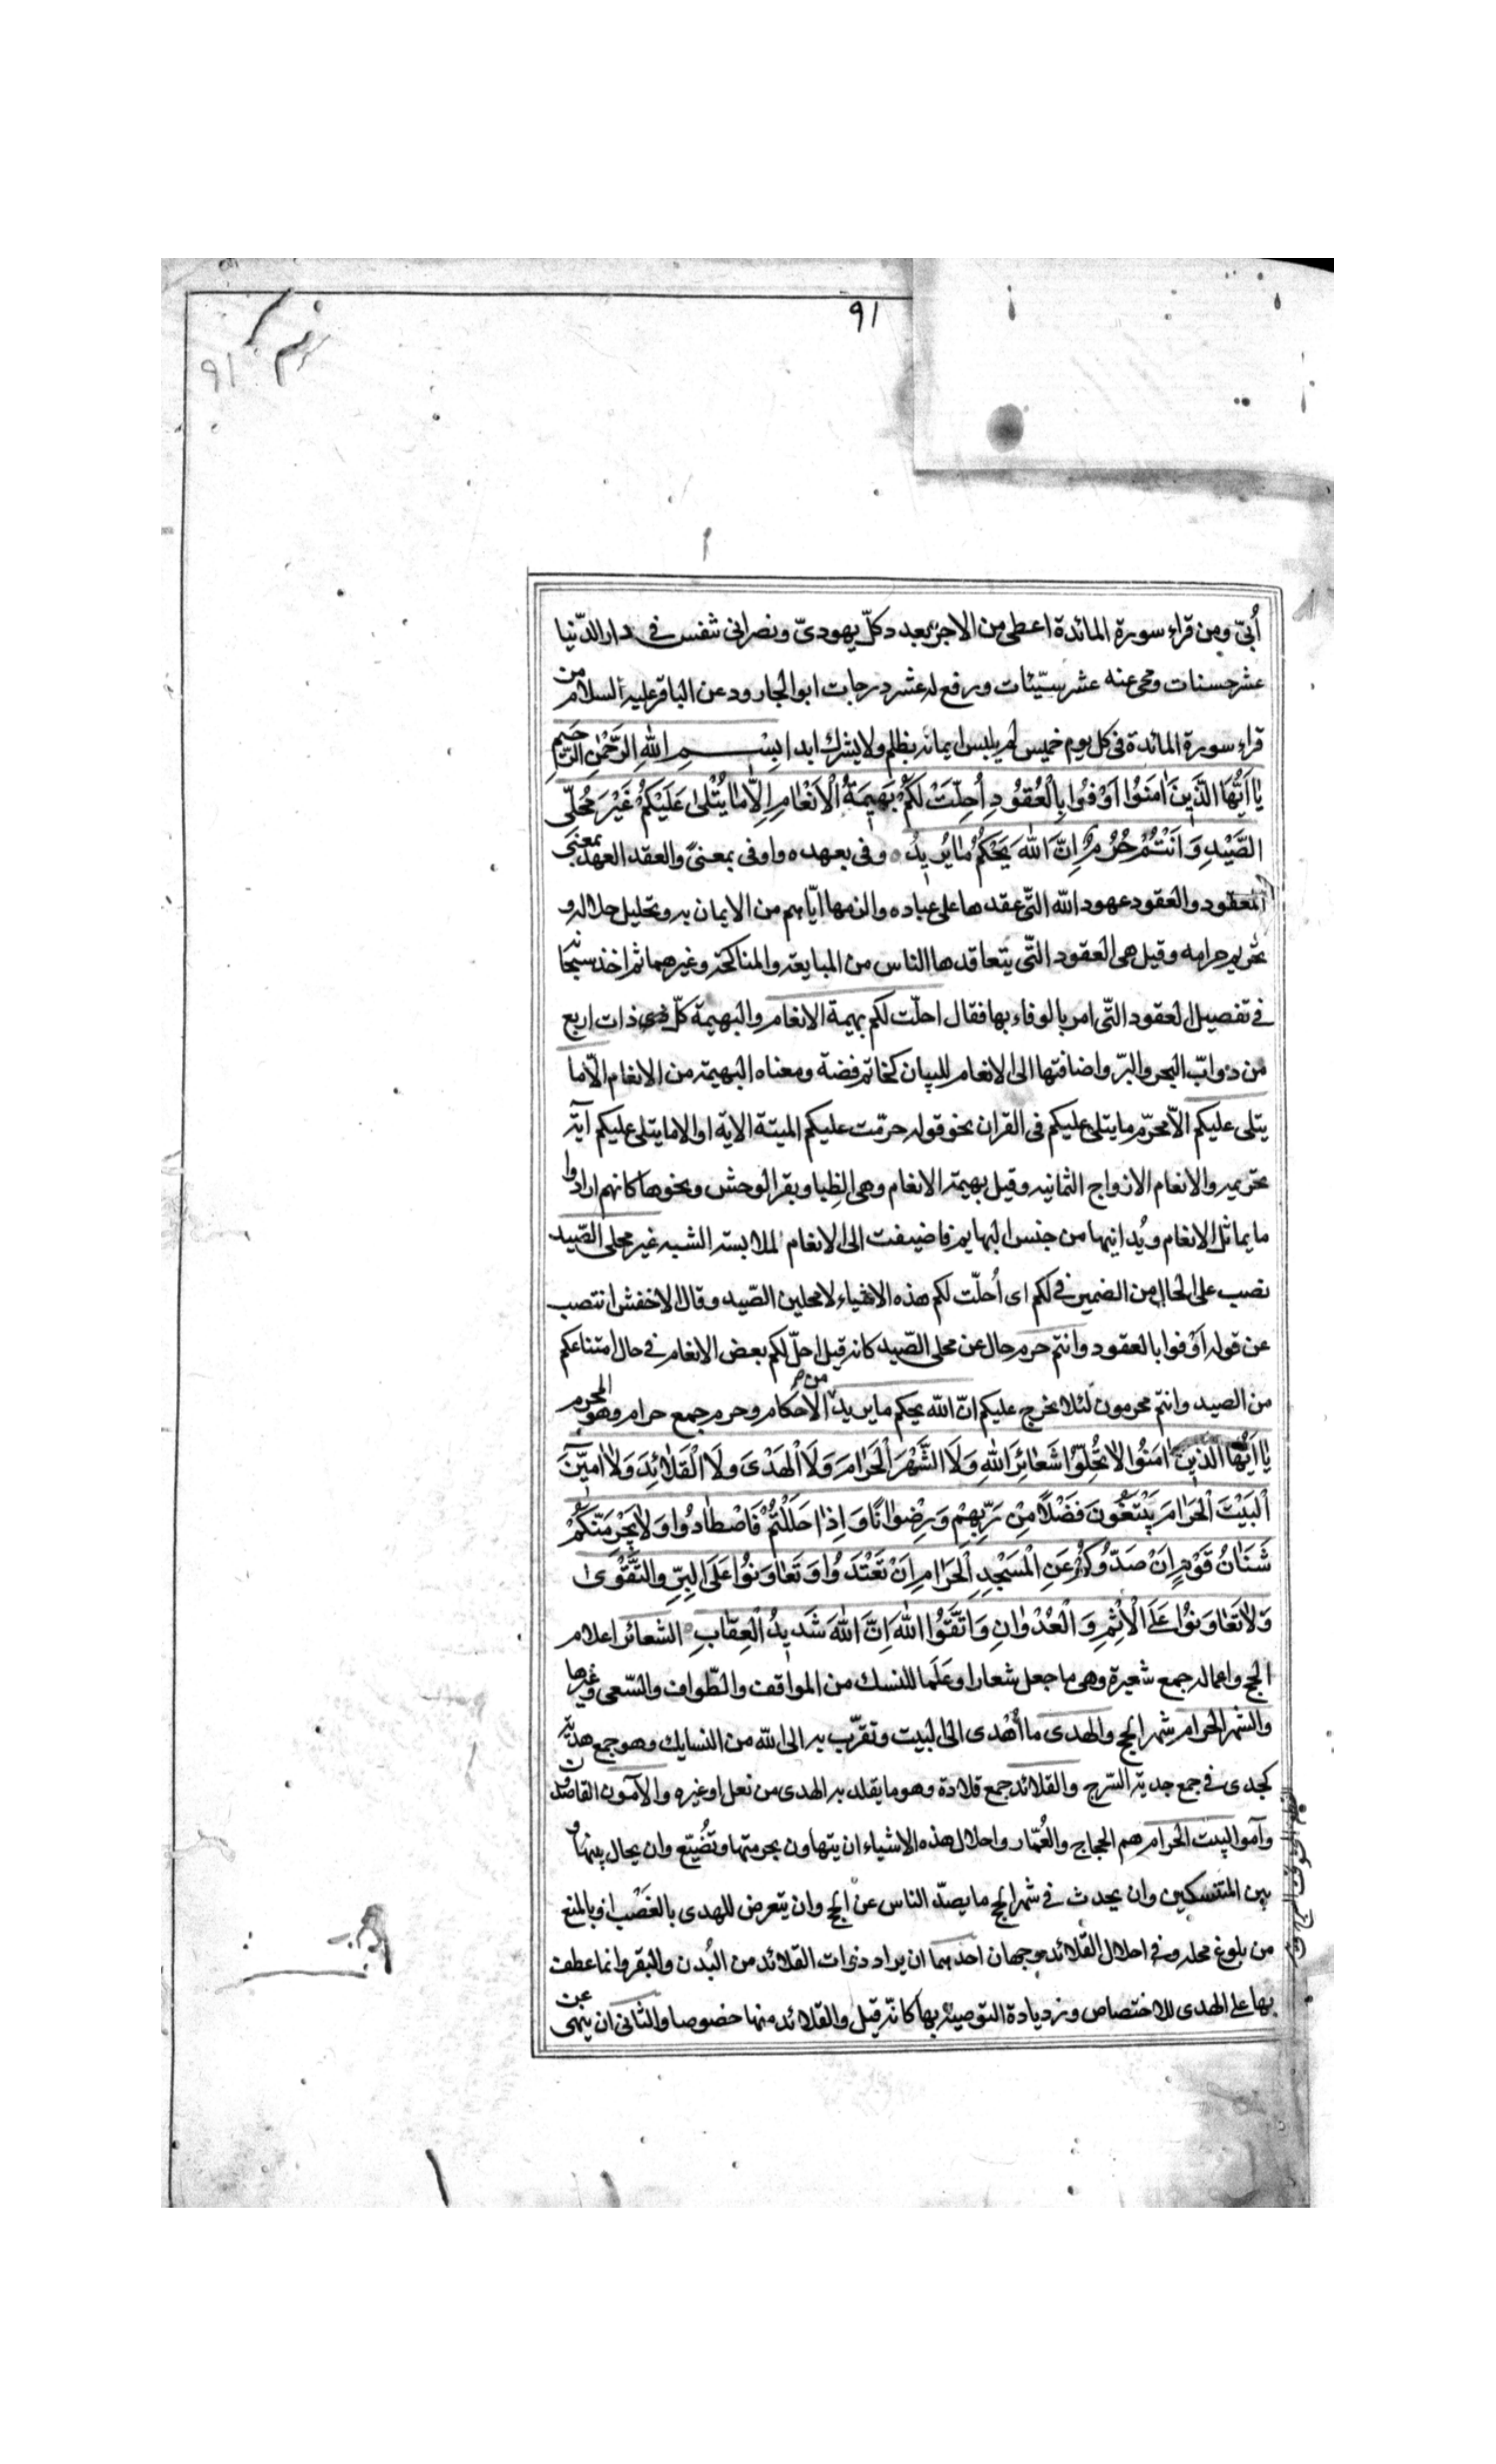 ٩١
٩١
أبيّ ومن قراء سورة المائدة اعطى من الاجر بعدد كلّ يهوديّ ونصرانى تنفس فى دار الدّنيا
عشر حسنات ومحى عنه عشر سيّئات ورفع له عشر درجات ابو الجارود عن الباقر عليه السلام من
قراء سورة المائدة فى كل يوم خميس لم يلبس ايمانه بظلم ولا يشرك ابدا بِسْمِ اللهِ الرَّحْمٰنِ الرَّحيمِ
يٰا اَيُّهَا الَّذينَ اٰمَنُوا اَوْفُوا بِالْعُقُودِ اُحِلَّتْ لَكُمْ بَهيمَةُ الْاَنْعٰامِ اِلّٰا مٰا يُتْلىٰ عَلَيْكُمْ غَيْرَ مُحِلِّى
الصَّيْدِ وَاَنْتُمْ حُرُمٌ اِنَّ اللهَ يَحْكُمُ مٰا يُريدُ ه وفى بعهده واوفى بمعنىً والعقد العهد بمعنى
المعقود والعقود عهود الله الّتى عقدها على عباده والزمها ايّاهم من الايمان به وتحليل حلاله و
تحريم حرامه وقيل هى العقود الّتى يتعاقدها الناس من المبايعة والمناكحة وغيرهما ثم اخذ سبحانه
فى تفصيل العقود الّتى امر بالوفاء بها فقال احلّت لكم بهيمة الانعام والبهيمة كلّ ذات اربع
من دوابّ البحر والبرّ واضافتها الى الانعام للبيان كخاتم فضة ومعناه البهيمة من الانعام الّا ما
يتلى عليكم الّا محرّم ما يتلى عليكم فى القران نحو قوله حرّمت عليكم الميتة الاية او الا ما يتلى عليكم آية
تحريمه والانعام الازواج الثمانيه وقيل بهيمة الانعام وهى الظبا وبقر الوحش ونحوها كانهم ارادوا
ما يماثل الانعام ويُدانيها من جنس البهايم فاضيفت الى الانعام لملابسة الشبه غير محلى الصّيد
نصب على الحال من الضمير فى لكم اى أحلّت لكم هذه الاشياء لا محلين الصّيد وقال الاخفش انتصب
عن قوله اَوْفوا بالعقود وانتم حرم حال عن محلى الصّيد كانه قيل احلّ لكم بعض الانعام فى حال امتناعكم
من الصيد وانتم محرمون لئلا يحرج عليكم انّ الله يحكم ما يريد من الاحكام وحرم جمع حرام وهو المحرم
يٰا اَيُّهَا الَّذينَ اٰمَنُوا لٰا تُحِلُّوا شَعٰائِرَ اللهِ وَلَا الشَّهْرَ الْحَرٰامَ وَلَا الْهَدْىَ وَلَا الْقَلٰائِدَ وَلٰا آمّينَ
الْبَيْتَ الْحَرٰامَ يَبْتَغُونَ فَضْلًا مِنْ رَبِّهِمْ وَرِضْوٰانًا وَاِذٰا حَلَلْتُمْ فَاصْطٰادُوا وَلٰا يَجْرِمَنَّكُمْ
شَنَاٰنُ قَوْمٍ اِنْ صَدُّوكُمْ عَنِ الْمَسْجِدِ الْحَرٰامِ اَنْ تَعْتَدُوا وَتَعٰاوَنُوا عَلَى الْبِرِّ وَالتَّقْوىٰ
وَلٰا تَعٰاوَنُوا عَلَى الْاِثْمِ وَالْعُدْوٰانِ وَاتَّقُوا اللهَ اِنَّ اللهَ شَديدُ الْعِقٰابِ الشعائر اعلام
الحج واعماله جمع شعيرة وهى ما جعل شعارا وعَلَما للنسك من المواقف والطّواف والسّعى وغيرها
والشهر الحرام شهر الحج والهدى ما أهْدى الى البيت وتقرّب به الى الله من النسايك وهو جمع هدية
كجدى فى جمع جدية السّرج والقلائد جمع قلادة وهو ما يقلد به الهدى من نعل او غيره والآمون القاصدون
وآموا البيت الحرام هم الحجاج والعُمّار واحلال هذه الاشياء ان يتهاون بحرمتها وتُضيّع وان يحال بينها و
بين المتنسكين وان يحدث فى شهر الحج ما يصدّ الناس عن الحج وان يتعرض للهدى بالغَصْب او بالمنع
من بلوغ محله وفى احلال القلائد وجهان احدهما ان يراد ذوات القلائد من البُدن والبقر وانما عطفت
بها على الهدى للاختصاص وزديادة التوصية بها كانّه قيل والقلائد منها خصوصا والثانى ان ينهى عن